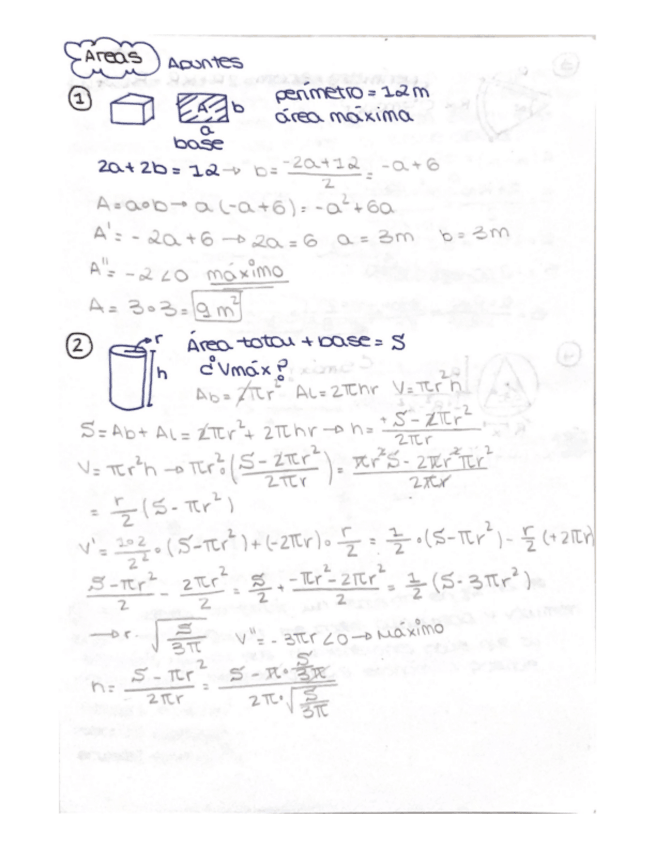 Áreas Apuntes
① A b perímetro = 12m
área máxima
a
base
2a+2b = 12 → b = (-2a+12)/2 = -a+6
A = a·b → a(-a+6) = -a²+6a
A' = -2a+6 → 2a = 6 a = 3m b = 3m
A'' = -2<0 máximo
A = 3·3 = 9m²
② r h Área total + base = S
c° Vmáx?
Ab = 2πr² Al = 2πhr V = πr²h
S = Ab + Al = 2πr² + 2πhr → h = (+S-2πr²)/(2πr)
V = πr²h → πr²·((S-2πr²)/(2πr)) = (πr²S-2πr²πr²)/(2πr)
= r/2 (S-πr²)
V' = (1·2)/2² · (S-πr²)+(-2πr)· r/2 = 1/2 ·(S-πr²) - r/2 (+2πr)
(S-πr²)/2 - 2πr²/2 = S/2 + (-πr²-2πr²)/2 = 1/2 (S-3πr²)
→ r = √(S/3π) V'' = -3πr<0 → Máximo
h = (S-πr²)/(2πr) = (S-π· S/3π)/(2π·√(S/3π))